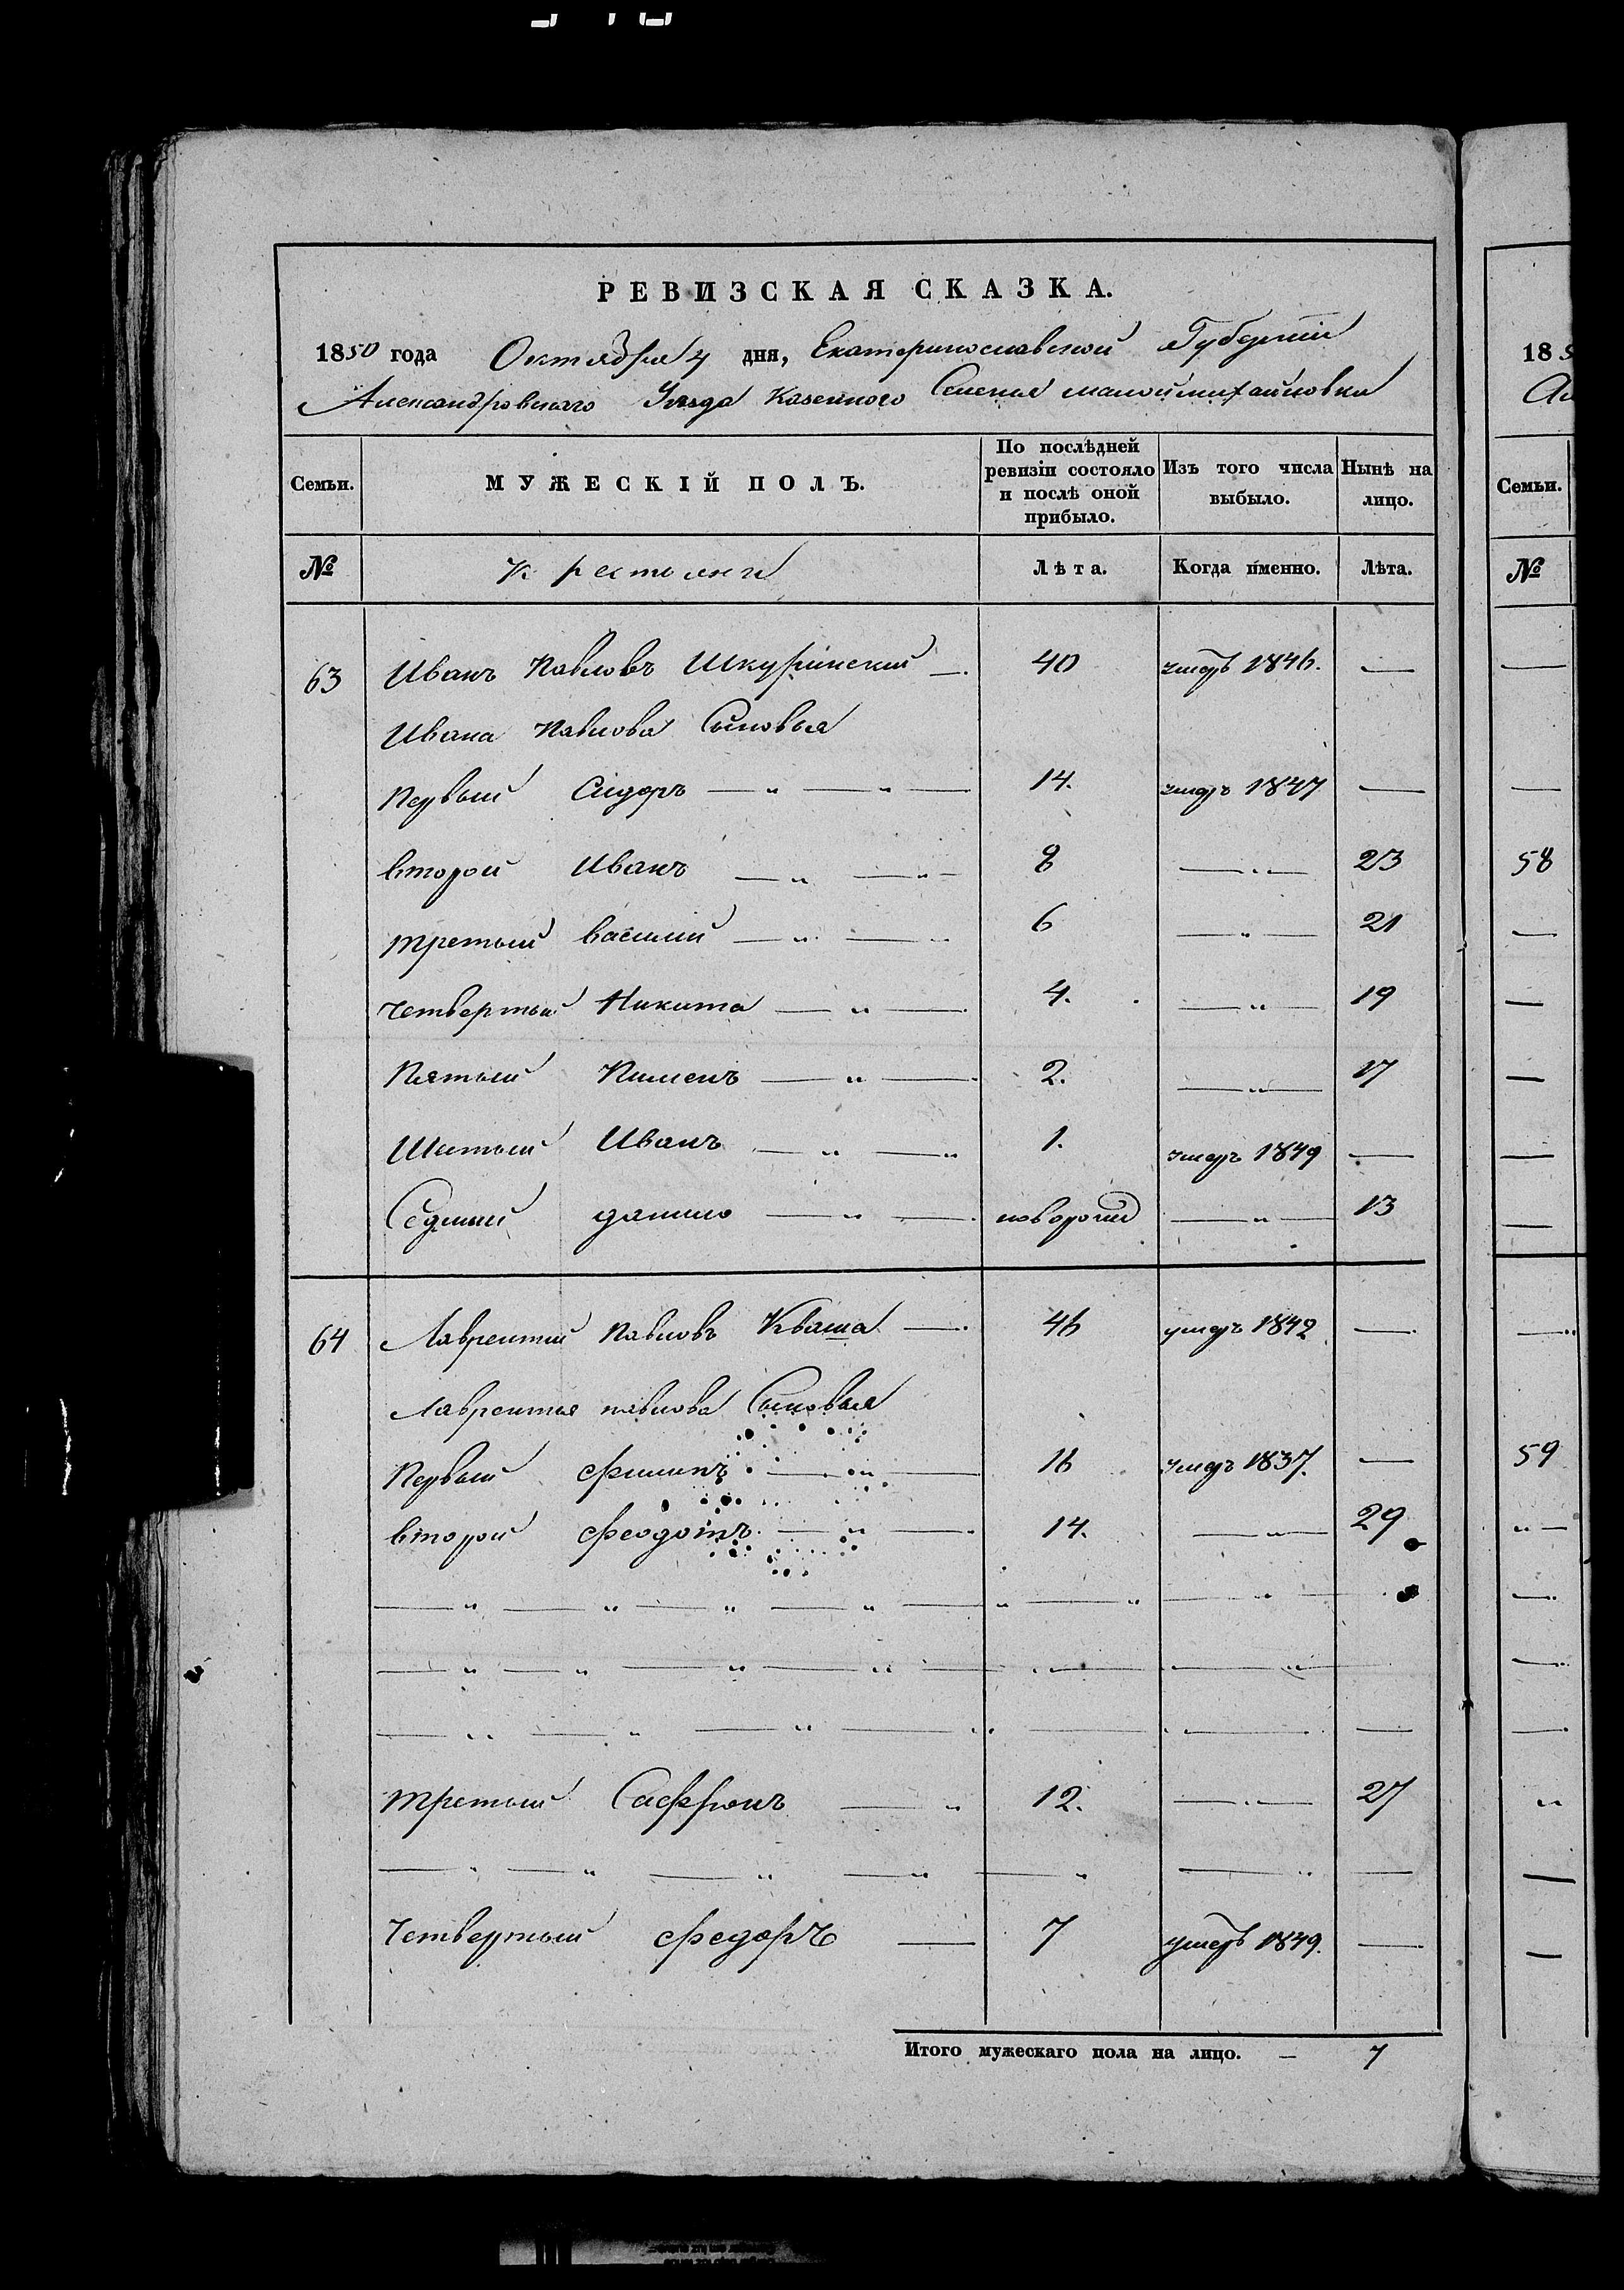 РЕВИЗСКАЯ СКАЗКА.
1850 года Октября 4 дня, Екатеринославской Губернiи
Александровскаго Уезда Казенного Селенiя малоймихайловки
Семьи. МУЖЕСКIЙ ПОЛЪ. По послѣдней ревизiи состояло и послѣ оной прибыло. Изъ того числа выбыло. Нынѣ на лицо.
№ Крестьяне Лѣта. Когда именно. Лѣта.
63 Иванъ Павловъ Шкуринский — 40 умеръ 1846. —
Ивана Павлова Сыновья
Первый Сидоръ — „ — „ — 14. умеръ 1847 —
второй Иванъ — „ — „ — 8 — „ — 23
третый василий — „ — „ 6 — „ — 21
четвертый Никита — „ — 4. — „ — 19
Пятый Пименъ — „ — 2. — „ — 17
Шестый Иванъ — „ — „ 1. умеръ 1849 —
Седмый данило — „ — новорожд — „ — 13
64 Лаврентий Павловъ Кваша — 46 умеръ 1842 —
Лаврентия павлова Сыновья
Первый Филипъ — „ — 16 умеръ 1837. —
второй Феодотъ — „ — 14. — „ — 29
третый Саффронъ — „ 12. — „ — 27
Четвертый Федоръ — 7 умеръ 1849. —
Итого мужескаго пола на лицо. — 7
18 5
Семьи.
№
58
59